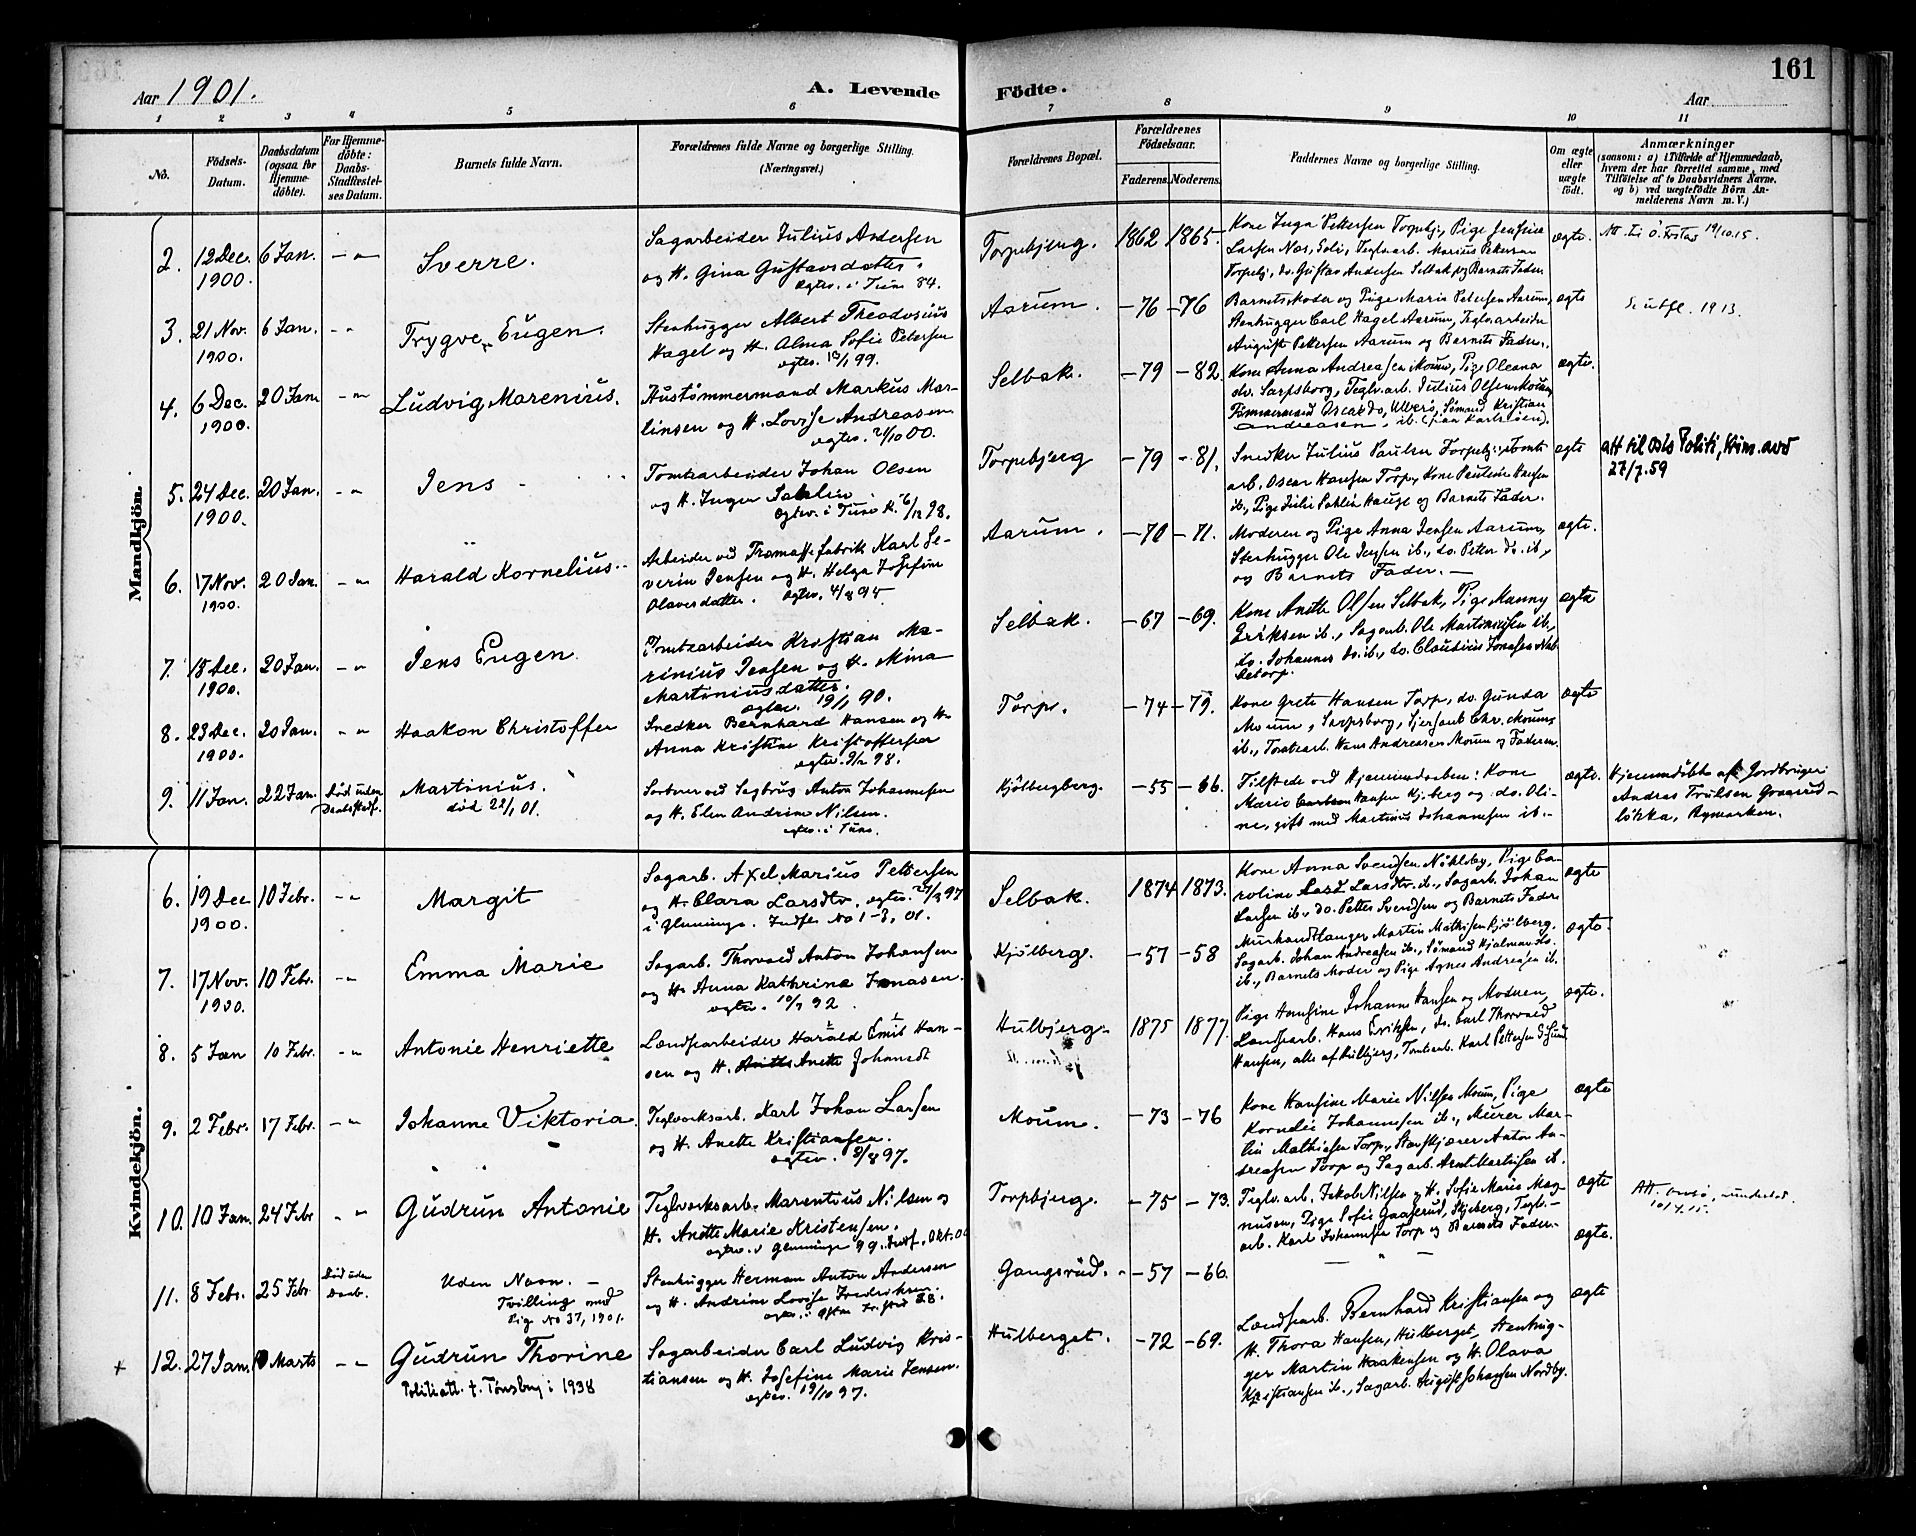 161
Aar 1901.
A. Levende Födte.
Aar
1 2 3 4 5 6 7 8 9 10 11
No.
Födsels-
Datum.
Daabsdatum
(ogsaa for
Hjemme-
döbte).
For Hjemme-
döbte:
Daabs-
Stadfæstel-
ses Datum.
Barnets fulde Navn.
Forældrenes fulde Navne og borgerlige Stilling.
(Næringsvei.)
Forældrenes Bopæl.
Forældrenes
Födselsaar.
Faderens. Moderens.
Faddernes Navne og borgerlige Stilling.
Om ægte
eller
uægte
født.
Anmærkninger
(saasom: a) i Tilfælde af Hjemmedaab,
hvem der har forrettet samme, med
Tilföielse af to Daabsvidners Navne.
og b) ved uægtefödte Börn An-
melderens Navn m. V.)
Mandkjön.
2. 12 Dec. 1900. 6 Jan. -"-
Sverre.
Sagarbeider Julius Andersen
og H. Gina Gustavsdatter.
Ægtev. i Tune 84.
Torpebjerg. 1862 1865.
Kone Inga Pettersen Torpebj., Pige Jensine
Larsen Næs, Soli, Teglv.arb. Marius Pettersen
Torpebj., do. Gustav Andersen Selbak, og Barnets Fader
ægte.
3. 21 Nov. 1900. 6 Jan. -"-
Trygve Eugen.
Stenhugger Albert Theodosius
Hagel og H. Alma Sofie Petersen
ægtev. 99.
Aarum. -76 -76
Barnets Moder og Pige Marie Petersen Aarum,
Stenhugger Carl Hagel Aarum, Teglv.arbeider
August Pettersen Aarum og Barnets Fader.
ægte
utfl. 1913.
4. 6 Dec. 1900. 20 Jan. -"-
Ludvig Marenius.
Hustømmermand Markus Mar-
linsen og H. Lovise Andreasen
ægtev. 00.
Selbak. -79 -82.
Kone Anna Andreasen Moum, Pige Oleana
do. Sarpsborg, Teglv.arb. Julius Olsen Moum,
ægte.
5. 24 Dec. 1900. 20 Jan. -"-
Jens
Tomtearbeider Johan Olsen
og H. Inger Sahlin.
Ægtev. i Tune K. 6/12 98.
Torpebjerg -79 -81.
Snedker Julius Paulsen Torpebj., Tomte-
arb. Oscar Hansen Torp, Kone Pauline Hansen
ib., Pige Julie Sahlin Hauge og Barnets Fader.
ægte
att til Oslo Politi, Krim.avd
27/7.59
6. 17 Nov. 1900. 20 Jan. -"-
Harald Kornelius.
Arbeider ved Træmassefabrik Karl Se-
verin Jensen og H. Helga Josefine
Olavesdatter. Ægtev. 4/8 95
Aarum. -70 -71.
Moderen og Pige Anna Jensen Aarum,
Stenhugger Ole Jensen ib., do. Peter do. ib.,
og Barnets Fader. -
ægte.
7. 15 Dec. 1900. 20 Jan. -"-
Jens Eugen
Tomtearbeider Kristian Ma-
rinius Jensen og H. Mina
Martiniusdatter.
ægtev. 19/1 90.
Selbak. -67 -69.
Kone Anette Olsen Selbak, Pige Manny
Eriksen ib., Sagarb. Ole Martinsen ib.,
do. Johannes do. ib., do. Claudius Jonasen
ægte
8. 23 Dec. 1900. 20 Jan. "-"
Haakon Christoffer
Snedker Bernhard Hansen og H.
Anna Kristine Kristoffersen
ægtev. 98.
Torp. -74 -79.
Kone Grete Hansen Torp, do. Gunda
Moum, Sarpsborg, Chr. Moum
ib., Tomtearb. Hans Andreasen Moum og Faderen.
ægte
9. 11 Jan. 22 Jan. Død uden Daabsstadf.
Martinius.
død 22/1 01.
Sorterer ved Sagbrug Anton Johannesen
og H. Elen Andrine Nilsen.
ægtev. i Tune.
Kjölbergberg. -55 -66.
Tilstede ved Hjemmedaaben: Kone
Marie Hansen Kj.berg og do. Oli-
ne, gift med Martinus Johannesen ib. -
ægte.
Hjemmedöbt af Jordbruger
Andreas Trulsen Gaaserud-
lökka, Rymarken.
Kvindekjön.
6. 19 Dec 1900. 10 Febr. -"-
Margit
Sagarb. Axel Marius Pettersen
og H. Clara Larsdtr. ægtev. 97
i Glemminge. Indfl. No 1-3, 01.
Selbak. 1874 1873.
Kone Anna Svendsen Nökleby, Pige Ca-
roline Larsdtr. ib., Sagarb. Johan
Larsen ib., do. Petter Svendsen og Barnets Fader
ægte
7. 17 Nov. 1900. 10 Febr. -"-
Emma Marie
Sagarb. Thorvald Anton Johansen
og H. Anna Kathrine Jonasen.
ægtev. 92
Kjölberg. -57 -58
Murhandtlanger Martin Mathisen Kjölberg,
Sagarb. Johan Andreasen ib., Sömand Hjalmar do.
ib., Barnets Moder og Pige Agnes Andreasen ib.
ægte.
8. 5 Jan 10 Febr. -"-
Antonie Henriette
Landsarbeider Harald Emil Han-
sen og H. Anette Johansdt
Hulbjerg. 1875 1877.
Pige Hansine Johanne Hansen og Moderen,
Landsarb. Hans Eriksen, do. Carl Thorvald
Hansen, alle af Hulbjerg, Tomtearb. Karl Pettersen
ægte.
9. 2 Febr. 17 Febr. -"-
Johanne Viktoria.
Teglverksarb. Karl Johan Larsen
og H. Anette Kristiansen.
ægtev. 8/8 97.
Moum. -73 -76
Kone Hansine Marie Nilsen Moum, Pige
Kornelie Johannesen ib., Murer Mar-
tin Mathisen Torp, Stenskjærer Anton An-
dreasen Torp og Sagarb. Arnt Martinsen ib.
ægte
10. 10 Jan. 24 Febr -"-
Gudrun Antonie
Teglverksarb. Marentius Nilsen og
H. Anette Marie Kristensen.
ægtev. i Glemminge 99. Indf. Okt. 00
Torpbjerg. -75 -73.
Teglv.arb. Jakob Nilsen og H. Sofie Marie Mag-
nusen, Pige Sofie Gaaserud, Skjeberg, Teglv.-
arb. Karl Johannesen Torp og Barnets Fader.
ægte
11. 8 Febr. 25 Febr Död uden Daab.
Uden Navn. -
Tvilling med
Pige No 37, 1901.
Stenhugger Herman Anton Andersen
og H. Andrine Lovise Fredriksen
Gangsrud. -57 -66.
ægte.
+ 12. 27 Jan. Marts -"-
Gudrun Thorine
Politiatt. t. Tønsberg i 1938
Sagarbeider Carl Ludvig Kris-
tiansen og H. Josefine Marie Jensen.
ægtev. 19/10 97.
Hulberget. -72 -69.
Landsarb. Bernhard Kristiansen og
H. Thora Hansen, Hulberget, Stenhug-
ger Martin Haakensen og H. Olava
Kristiansen ib., Sagarb. August Johansen Nordby.
ægte